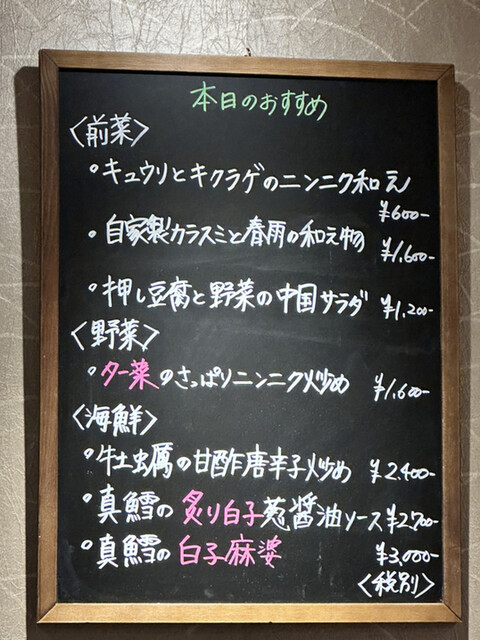 本日のおすすめ
〈前菜〉
・キュウリとキクラゲのニンニク和え
¥600-
・自家製カラスミと春雨の和え物 ¥1,600-
・押し豆腐と野菜の中国サラダ ¥1,200-
〈野菜〉
・ター菜のさっぱりニンニク炒め ¥1,600-
〈海鮮〉
・牡蠣の甘酢唐辛子炒め ¥2,400-
・真鱈の炙り白子葱醤油ソース ¥2,700-
・真鱈の白子麻婆 ¥3,000-
〈税別〉